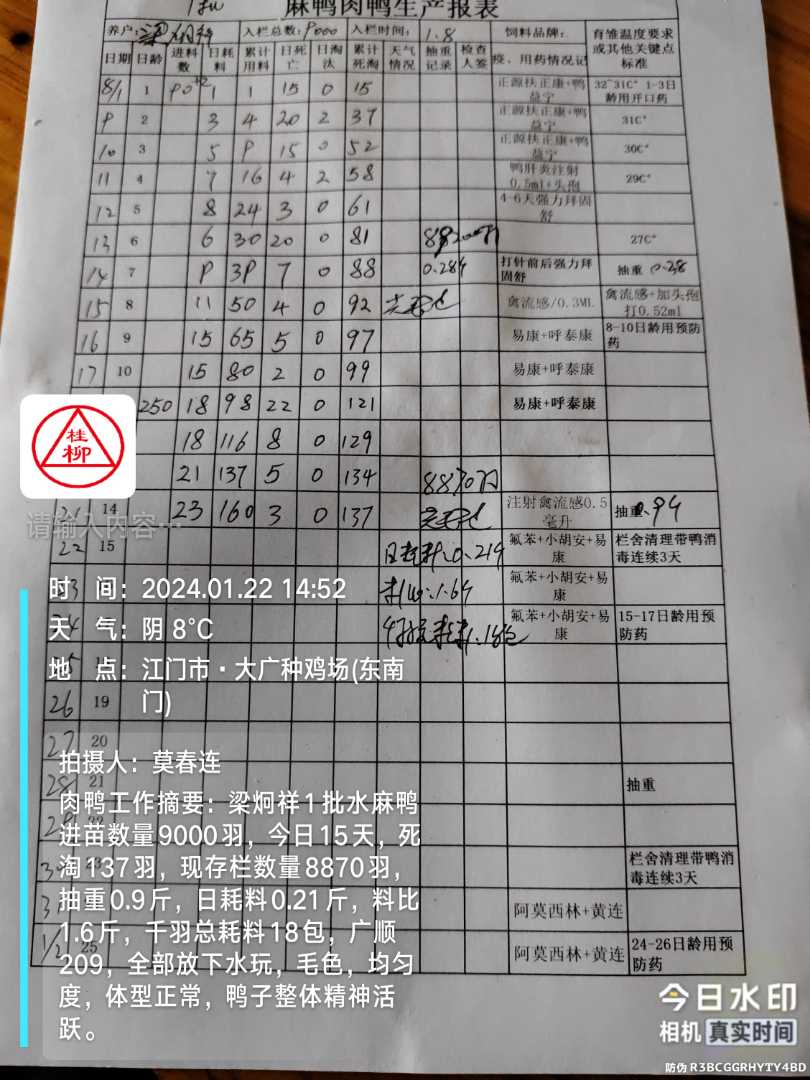 麻鸭肉鸭生产报表
养户: 入栏总数: 9000 入栏时间: 1.8 饲料品牌: 育雏温度要求或其他关键点标准
日期 日龄 进料数 日耗料 累计用料 日死亡 日淘汰 累计死淘 天气情况 抽重记录 检查人签 疫、用药情况记
8/1 1 90 1 1 15 0 15 正源扶正康+鸭益宁 32~31C° 1-3日龄用开口药
9 2 3 4 20 2 37 正源扶正康+鸭益宁 31C°
10 3 5 9 15 0 52 正源扶正康+鸭益宁 30C°
11 4 7 16 4 2 58 鸭肝炎注射0.5ml+头孢 29C°
12 5 8 24 3 0 61 4-6天强力拜固舒
13 6 6 30 20 0 81 27C°
14 7 9 39 7 0 88 0.284 打针前后强力拜固舒 抽重 0.28
15 8 11 50 4 0 92 禽流感/0.3ML 禽流感+加头孢打0.52ml
16 9 15 65 5 0 97 易康+呼泰康 8-10日龄用预防药
17 10 15 80 2 0 99 易康+呼泰康
250 18 98 22 0 121 易康+呼泰康
18 116 8 0 129
21 137 5 0 134 8870羽
21 14 23 160 3 0 137 注射禽流感0.5毫升 抽重 0.94
22 15 日耗料:0.219 氟苯+小胡安+易康 栏舍清理带鸭消毒连续3天
23 料比:1.64 氟苯+小胡安+易康
24 氟苯+小胡安+易康 15-17日龄用预防药
26 19
27 20
28 21 抽重
29 22
23 栏舍清理带鸭消毒连续3天
31 阿莫西林+黄连
1/2 25 阿莫西林+黄连 24-26日龄用预防药
桂
柳
请输入内容…
时 间: 2024.01.22 14:52
天 气: 阴 8℃
地 点: 江门市·大广种鸡场(东南
门)
拍摄人: 莫春连
肉鸭工作摘要: 梁炯祥1批水麻鸭
进苗数量9000羽，今日15天，死
淘137羽，现存栏数量8870羽，
抽重0.9斤，日耗料0.21斤，料比
1.6斤，千羽总耗料18包，广顺
209，全部放下水玩，毛色，均匀
度，体型正常，鸭子整体精神活
跃。
今日水印
相机 真实时间
防伪 R3BCGGRHYTY4BD